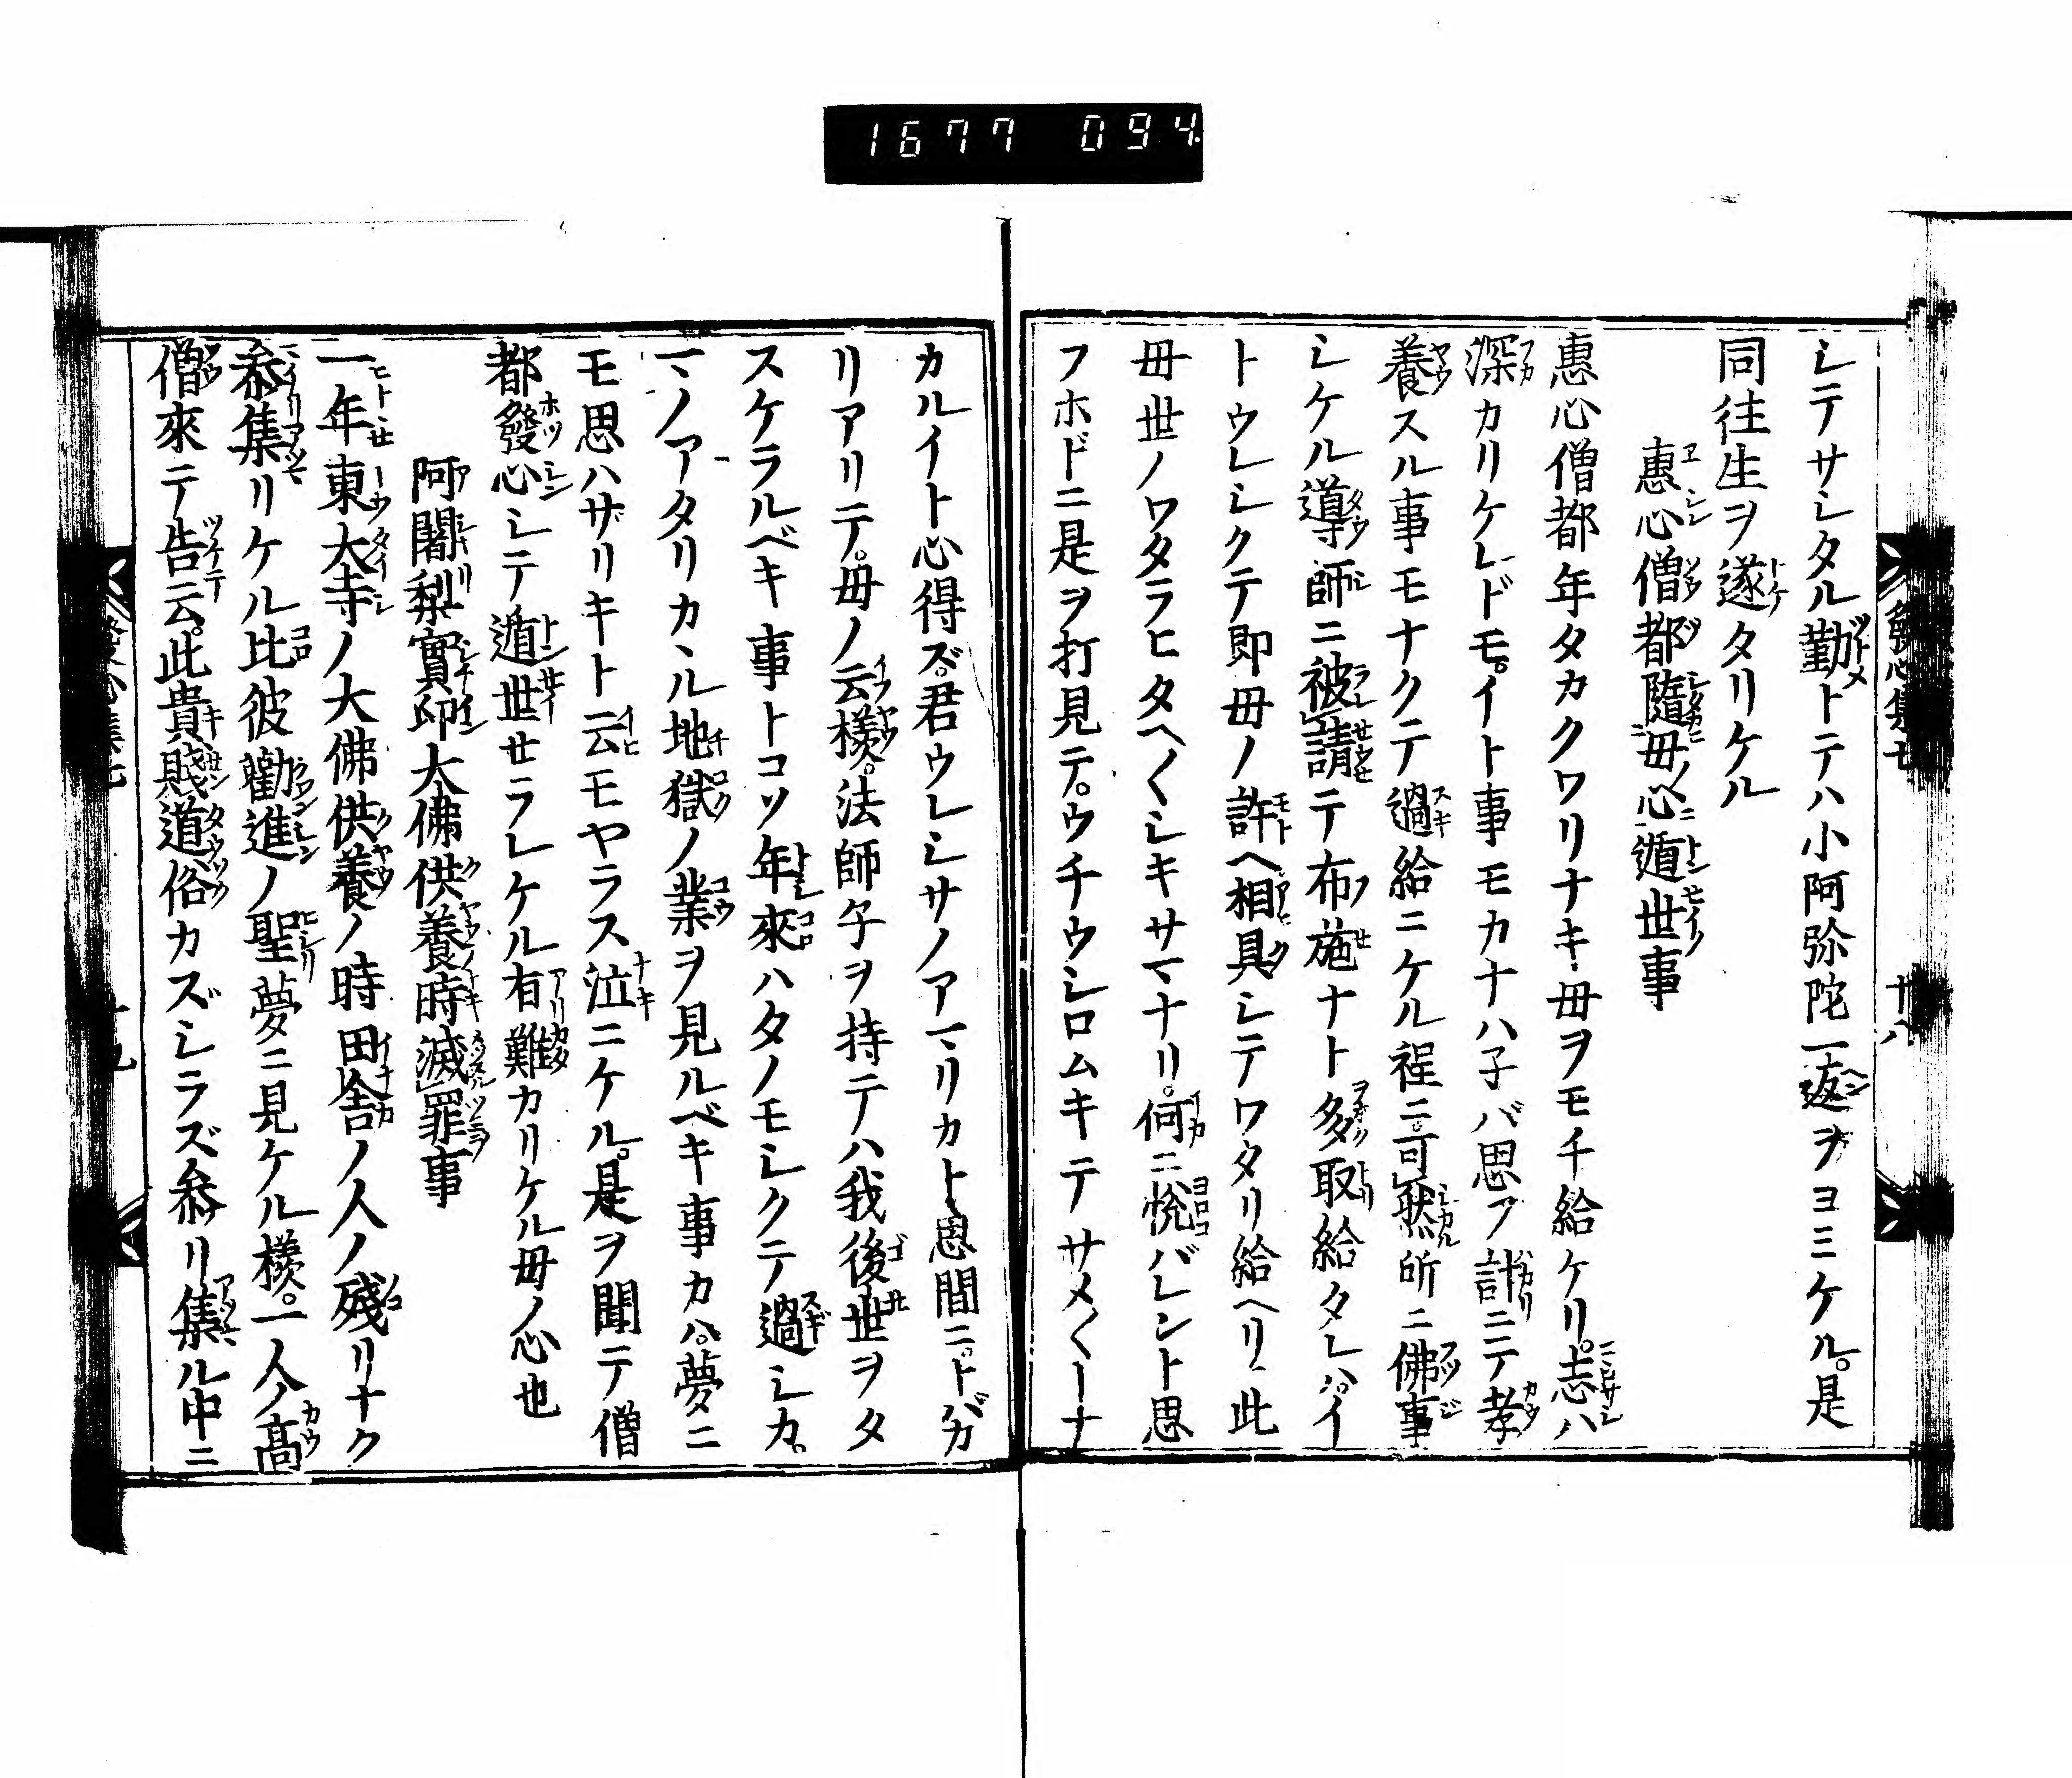 1677 094
發心集七
廿八
シテサシタル勤トテハ小阿弥陀一返ヲヨミケル。是
同往生ヲ遂タリケル
惠心僧都隨母心遁世事
惠心僧都年タカクワリナキ母ヲモチ給ケリ。志ハ
深カリケレドモ。イト事モカナハ子バ思フ計ニテ孝
養スル事モナクテ過給ニケル程ニ。可然所ニ佛事
シケル導師ニ被請テ布施ナト多取給タレバ。イ
トウレシクテ即母ノ許ヘ相具シテワタリ給ヘリ此
母世ノワタラヒタヘ〱シキサマナリ。何ニ悅バレント思
フホドニ是ヲ打見テ。ウチウシロムキテサメ〱ーナ
カルイト心得ズ。君ウレシサノアマリカト思間ニ。トバカ
リアリテ。母ノ云樣。法師子ヲ持テハ我後世ヲタ
スケラルベキ事トコソ年來ハタノモシクテ過シカ。
マノアタリカヽル地獄ノ業ヲ見ルベキ事カハ。夢ニ
モ思ハザリキト云モヤラス泣ニケル。是ヲ聞テ僧
都發心シテ遁世セラレケル有難カリケル母ノ心也
阿闍梨實印大佛供養時滅罪事
一年東大寺ノ大佛供養ノ時田舎ノ人ノ殘リナク
叅集リケル比彼勸進ノ聖夢ニ見ケル樣。一人ノ高
僧來テ告云。此貴賤道俗カズシラズ叅リ集ル中ニ
發心集七